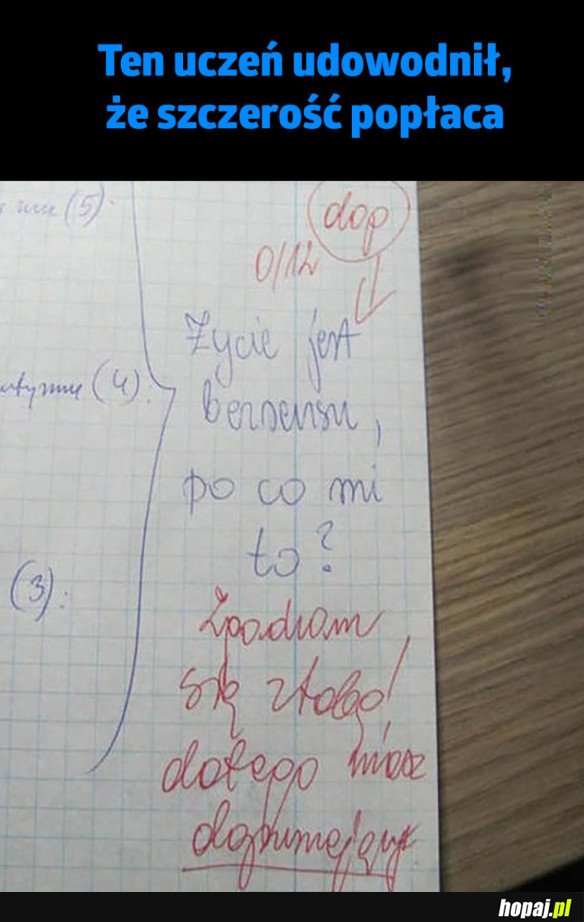 Ten uczeń udowodnił,
że szczerość popłaca
(5).
dop
0/12
Życie jest
(4).
bezsensu,
po co mi
to?
(3):
Zgadzam
się z tobą!
dlatego masz
dopuszczający.
hopaj.pl